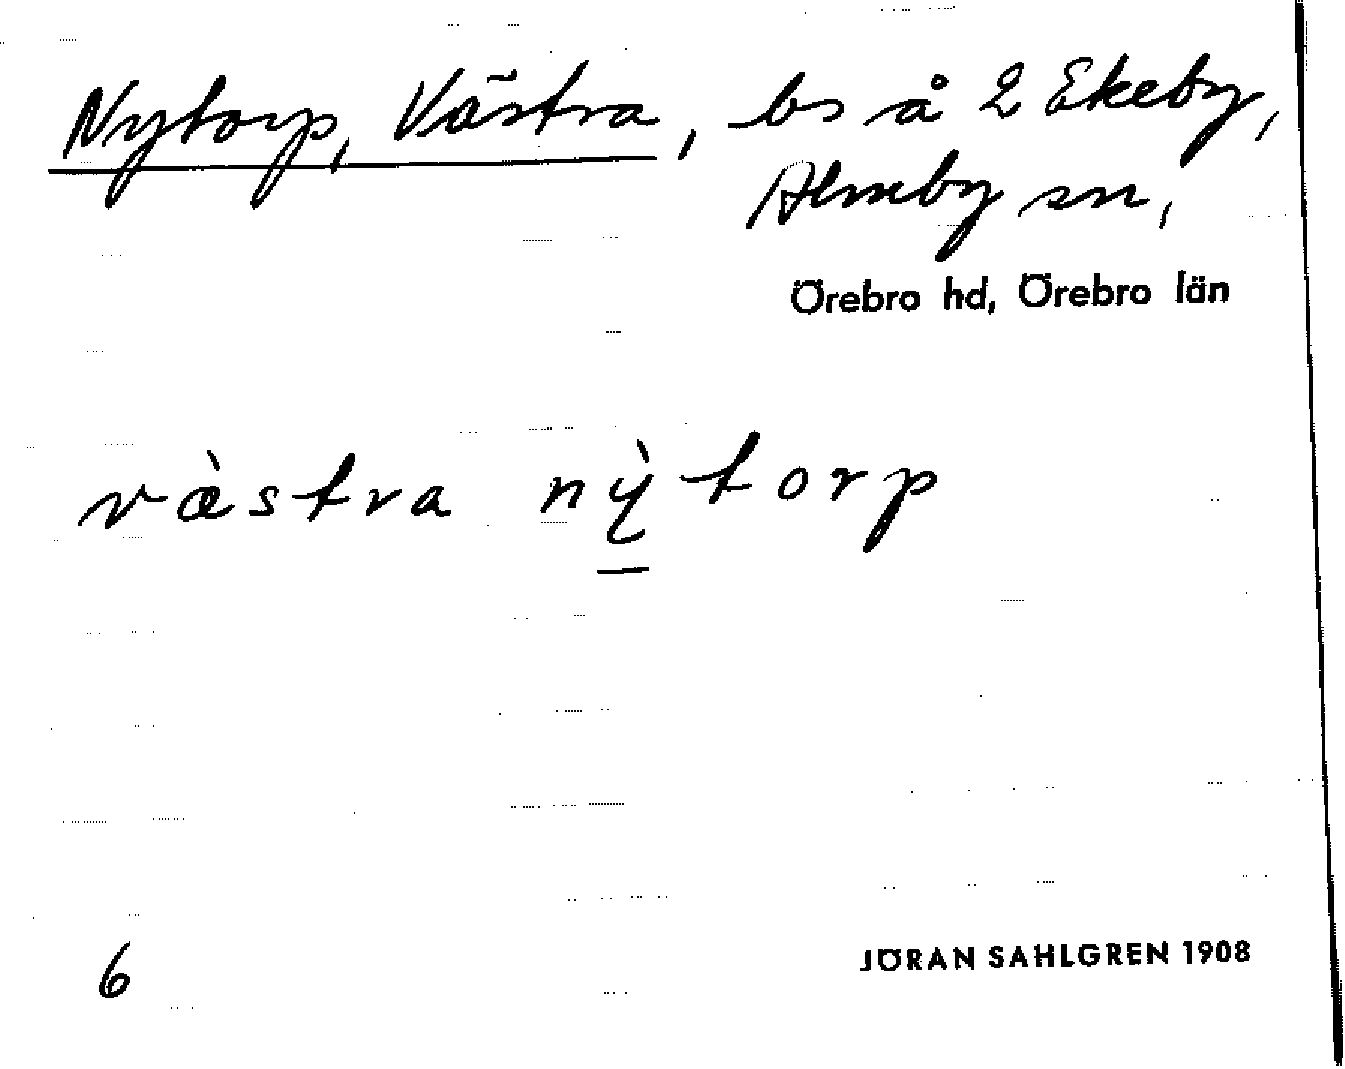 Nytorp, Västra, bs å 2 Ekeby,
Almby sn,
Örebro hd, Örebro län
væ̀stra nỳtorp
6
JÖRAN SAHLGREN 1908